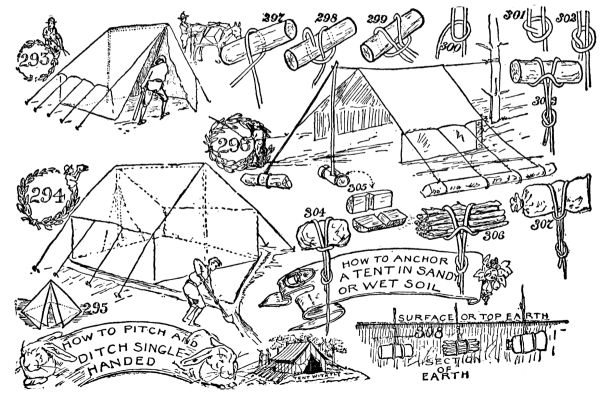 293
297
298
299
300
301
302
303
296
294
305
304
306
307
HOW TO ANCHOR
A TENT IN SANDY
OR WET SOIL
295
HOW TO PITCH AND
DITCH SINGLE
HANDED
SURFACE OR TOP EARTH
308
SECTION
OF
EARTH